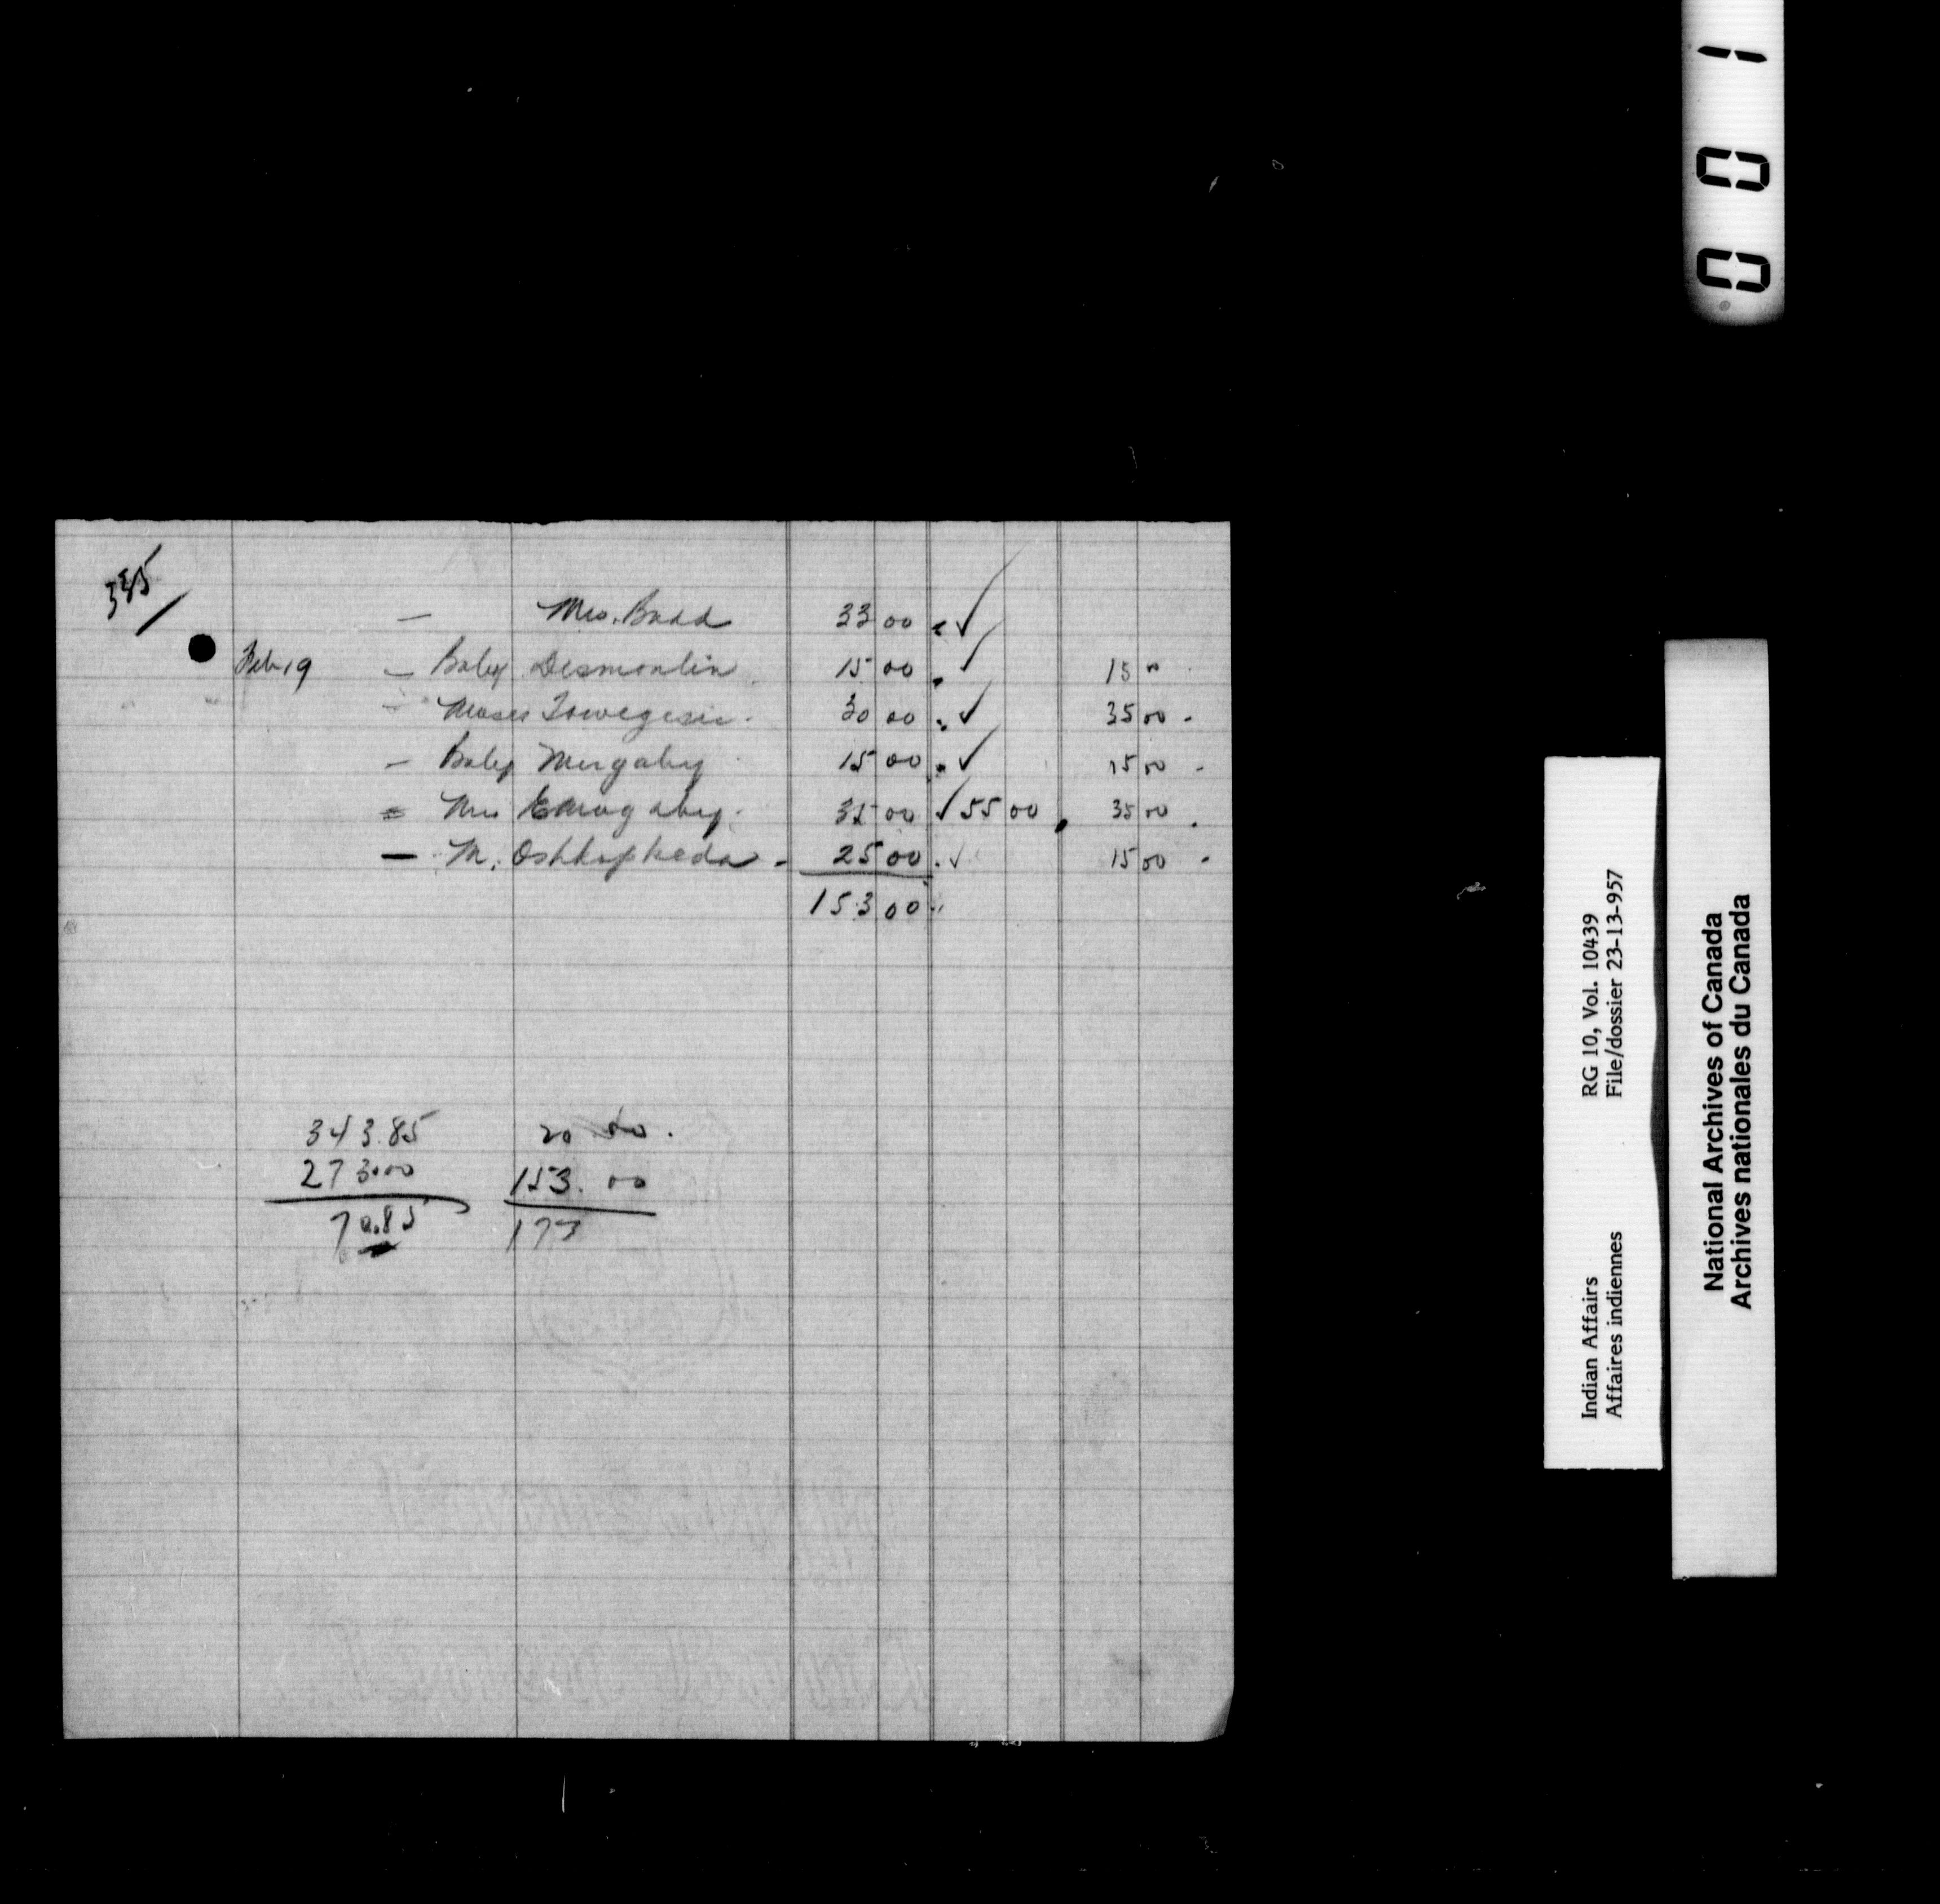 001
385/
— Mrs. Badd 33 00 ✓
Feb 19 — Baby Desmoulin 15 00 ✓ 15 00
— Moses 30 00 ✓ 35 00 -
— Baby 15 00 ✓ 15 00 -
Mrs 35 00 ✓ 55 00 35 00
— M. Oshkapkeda - 25 00 ✓ 15 00 -
153 00
343.85
273.00
70.85
20 00
153.00
173
Indian Affairs RG 10, Vol. 10439
Affaires indiennes File/dossier 23-13-957
National Archives of Canada
Archives nationales du Canada